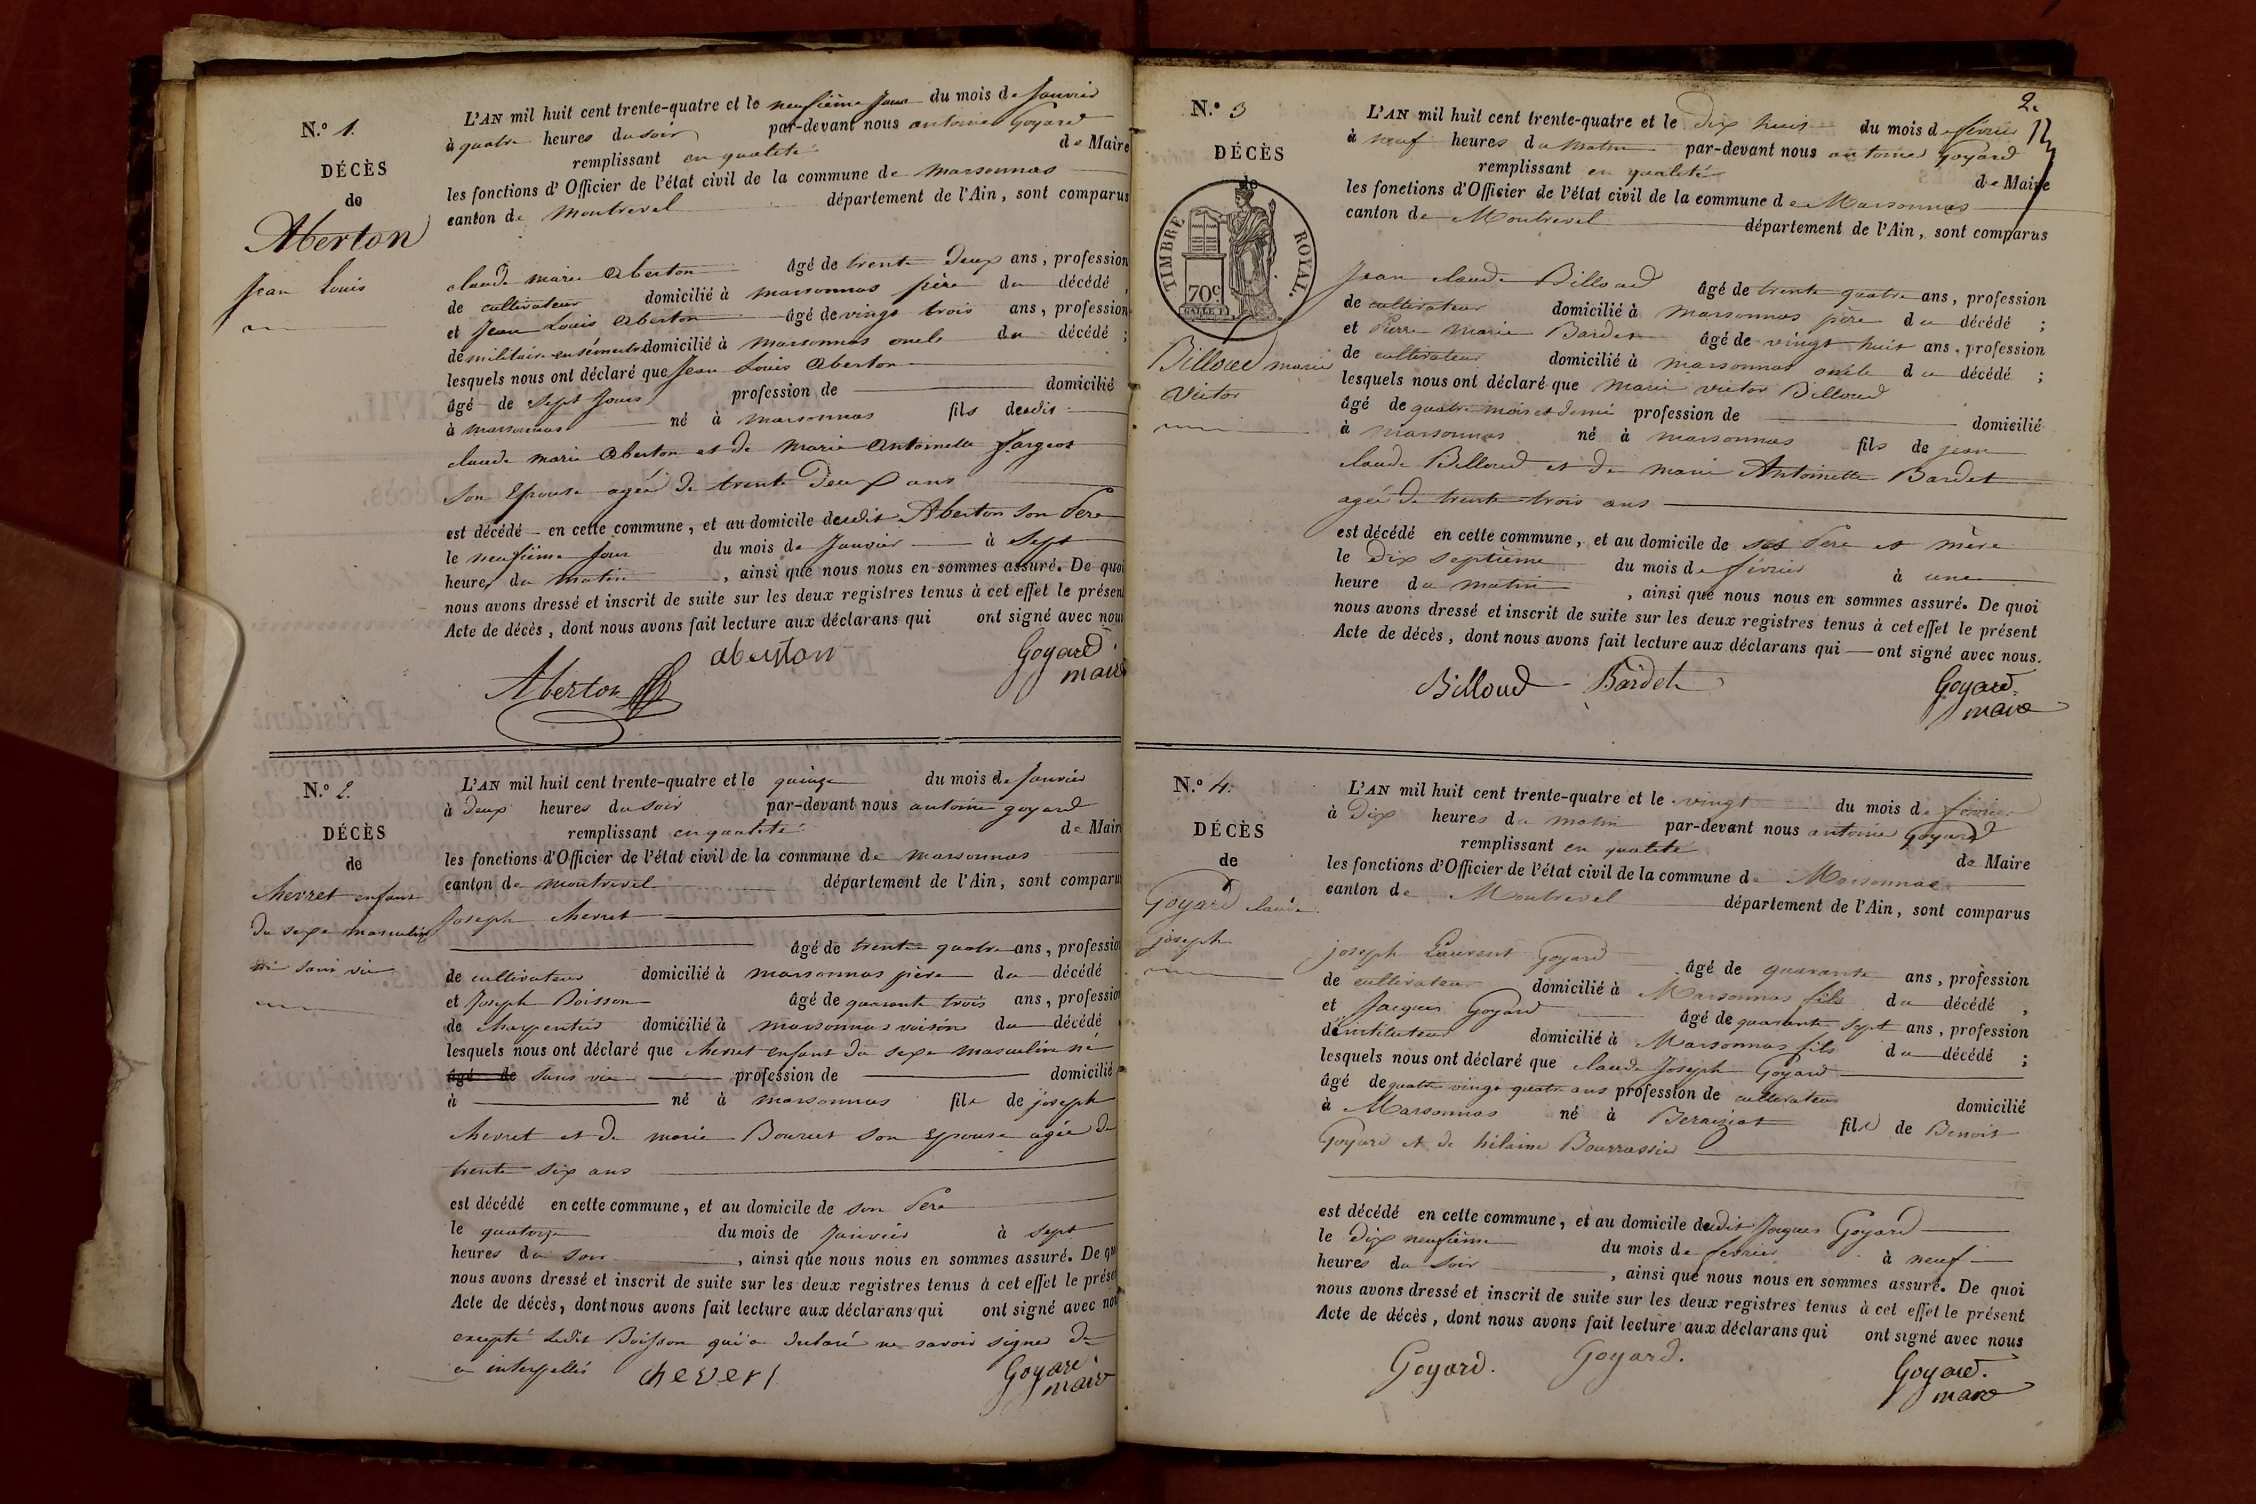 N.º 1.
DÉCÈS
de
Aberton
Jean Louis
L'AN mil huit cent trente-quatre et le neufième jour du mois de Janvier
à quatre heures du soir par-devant nous antoine Goyard
remplissant en qualité de Maire
les fonctions d'Officier de l'état civil de la commune de marsonnas
canton de montrevel département de l'Ain, sont comparus
claude marie Aberton âgé de trente deux ans, profession
de cultivateur domicilié à marsonnas père du décédé,
et Jean Louis Aberton âgé de vingt trois ans, profession
de militaire domicilié à marsonnas oncle du décédé;
lesquels nous ont déclaré que Jean Louis Aberton
âgé de sept jours profession de domicilié
à marsonnas né à marsonnas fils dudit
claude marie Aberton et de marie Antoinette
son Epouse agée de trente deux ans
est décédé en cette commune, et au domicile dudit Aberton son Père
le neufième jour du mois de Janvier à sept
heures du matin, ainsi que nous nous en sommes assuré. De quoi
nous avons dressé et inscrit de suite sur les deux registres tenus à cet effet le présen
Acte de décès, dont nous avons fait lecture aux déclarans qui ont signé avec nou
aberton Goyard
Aberton maire
N.º 2.
DÉCÈS
de
chevret enfant
du sexe masculin
né sans vie
L'AN mil huit cent trente-quatre et le quinze du mois de Janvier
à deux heures du soir par-devant nous antoine goyard
remplissant en qualité de Mair
les fonctions d'Officier de l'état civil de la commune de marsonnas
canton de montrevel département de l'Ain, sont comparu
Joseph chevret
âgé de trente quatre ans, professio
de cultivateur domicilié à marsonnas père du décédé
et Joseph Boisson âgé de quarante trois ans, professio
de charpentier domicilié à marsonnas voisin du décédé
lesquels nous ont déclaré que chevret enfant du sexe masculin né
âgé de sans vie profession de domicilié
à né à marsonnas fils de joseph
chevret et de marie Bouvet son Epouse agée de
trente six ans
est décédé en cette commune, et au domicile de son Père
le quatorze du mois de Janvier à sept
heures du soir, ainsi que nous nous en sommes assuré. De qu
nous avons dressé et inscrit de suite sur les deux registres tenus à cet effet le prése
Acte de décès, dont nous avons fait lecture aux déclarans qui ont signé avec nou
excepté ledit Boisson qui a declaré ne savoir signer de
ce interpellés chevert Goyard
maire
2.
N.º 3
DÉCÈS
de
TIMBRE ROYAL.
70c
Billoud marie
Victor
L'AN mil huit cent trente-quatre et le dix huit du mois de fevrier
à neuf heures du matin par-devant nous antoine Goyard
remplissant en qualité de Maire
les fonctions d'Officier de l'état civil de la commune de Marsonnas
canton de Montrevel département de l'Ain, sont comparus
Jean claude Billoud âgé de trente quatre ans, profession
de cultivateur domicilié à marsonnas père du décédé;
et Pierre Marie Bardet âgé de vingt huit ans, profession
de cultivateur domicilié à marsonnas oncle du décédé;
lesquels nous ont déclaré que marie victor Billoud
âgé de quatre mois et demi profession de domicilié
à marsonnas né à marsonnas fils de jean
claude Billoud et de marie Antoinette Bardet
agée de trente trois ans
est décédé en cette commune, et au domicile de ses Père et mère
le dix septième du mois de fevrier à une
heure du matin, ainsi que nous nous en sommes assuré. De quoi
nous avons dressé et inscrit de suite sur les deux registres tenus à cet effet le présent
Acte de décès, dont nous avons fait lecture aux déclarans qui ont signé avec nous.
Billoud Bardet Goyard
maire
N.º 4.
DÉCÈS
de
Goyard claude
joseph
L'AN mil huit cent trente-quatre et le vingt du mois de février
à dix heures du matin par-devant nous antoine Goyard
remplissant en qualité de Maire
les fonctions d'Officier de l'état civil de la commune de Marsonnas
canton de Montrevel département de l'Ain, sont comparus
joseph Laurent Goyard âgé de quarante ans, profession
de cultivateur domicilié à Marsonnas fils du décédé,
et Jacques Goyard âgé de quarante sept ans, profession
d'instituteur domicilié à Marsonnas fils du décédé;
lesquels nous ont déclaré que claude Joseph Goyard
âgé de quatre vingt quatre ans profession de cultivateur domicilié
à Marsonnas né à Bereiziat fils de Benoit
Goyard et de hilaine Bourrassier
est décédé en cette commune, et au domicile dudit Jacques Goyard
le dix neufième du mois de fevrier à neuf
heures du soir, ainsi que nous nous en sommes assuré. De quoi
nous avons dressé et inscrit de suite sur les deux registres tenus à cet effet le présent
Acte de décès, dont nous avons fait lecture aux déclarans qui ont signé avec nous
Goyard. Goyard. Goyard.
maire